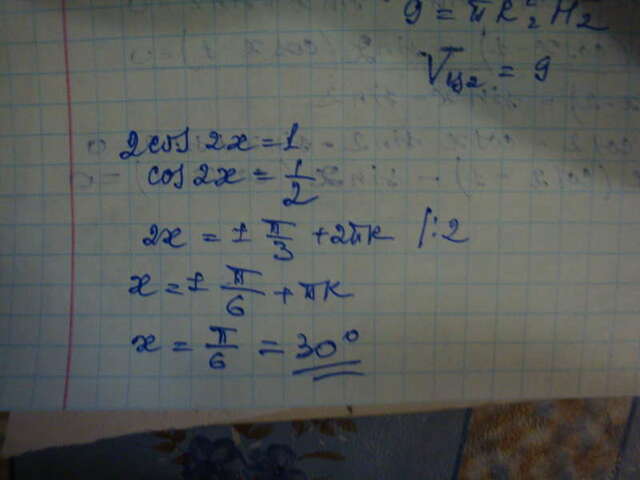 9 = πR₂² H₂
Vц₂ = 9
2cos 2x = 1
cos 2x = 1/2
2x = ± π/3 + 2πk /:2
x = ± π/6 + πk
x = π/6 = 30°